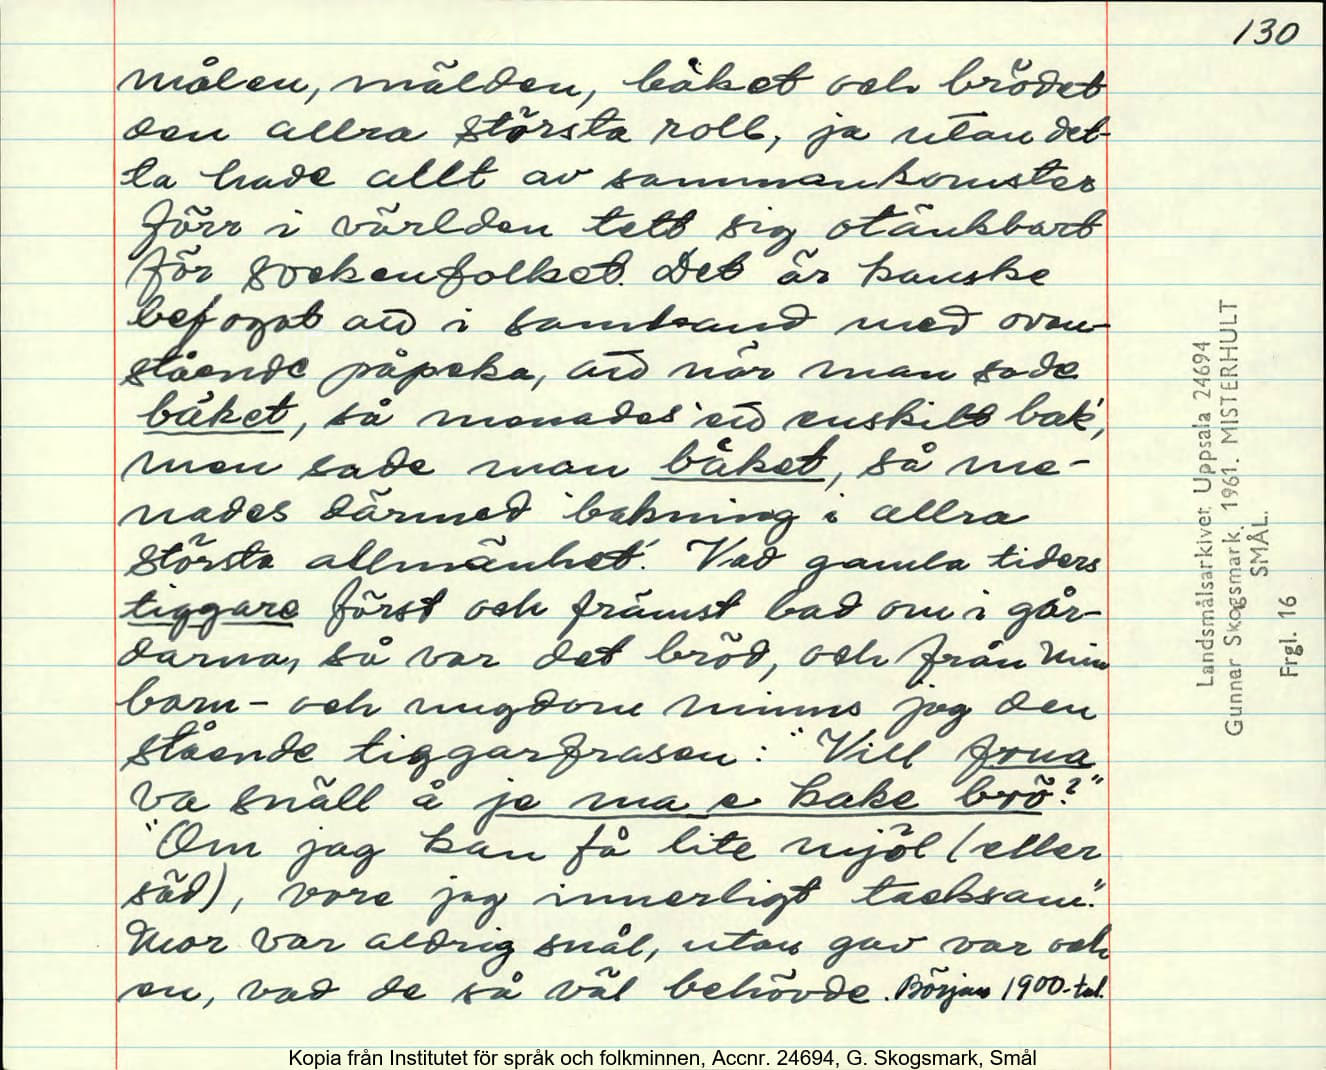 130
målen, mälden, båket och brödet
den allra största roll, ja utan det-
ta hade allt av sammankomster
förr i världen tett sig otänkbart
för sockenfolket. Det är kanske
befogat att i samband med ovan-
stående påpeka, att när man sade
båket, så menades 'ett enskilt bak',
men sade man båket, så me-
nades därmed 'bakning i allra
största allmänhet'. Vad gamla tiders
tiggare först och främst bad om i går-
darna, så var det bröd, och från min
barn- och ungdom minns jag den
stående tiggarfrasen: "Vill froua
va snäll å je ma e kake brö?"
"Om jag kan få lite mjöl (eller
säd), vore jag innerligt tacksam."
Mor var aldrig snål, utan gav var och
en, vad de så väl behövde. Början 1900-tal.
Landsmålsarkivet Uppsala 24694
Gunnar Skogsmark. 1961. MISTERHULT
SMÅL.
Frgl. 16
Kopia från Institutet för språk och folkminnen, Accnr. 24694, G. Skogsmark, Smål